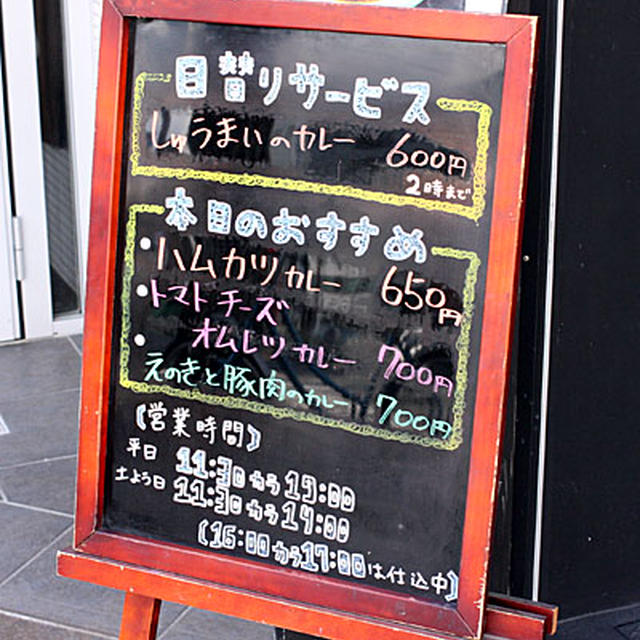 日替りサービス
しゅうまいのカレー 600円
2時まで
本日のおすすめ
・ハムカツカレー 650円
・トマトチーズ
オムレツカレー 700円
・えのきと豚肉のカレー 700円
【営業時間】
平日 11:30から19:00
土よう日 11:30から14:00
【16:00から17:00は仕込中】